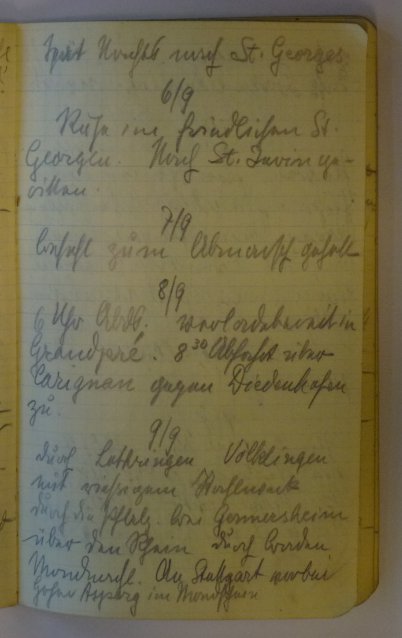 spät Nachts nach St. Georges
6/9
Ruhe im friedlichen St.
Georgen. Nach St. Juvin ge-
ritten.
7/9
Befehl zum Abmarsch geholt
8/9
6 Uhr Abds. verladebereit in
Grandpré. 8³⁰ Abfahrt über
Carignan gegen Diedenhofen
zu.
9/9
durch Lothringen Völklingen
mit riesigem Stahlwerk
durch die Pfalz. bei Germersheim
über den Rhein durch Baden
Mondnacht. An Stuttgart vorbei
Hohen Asperg im Mondschein